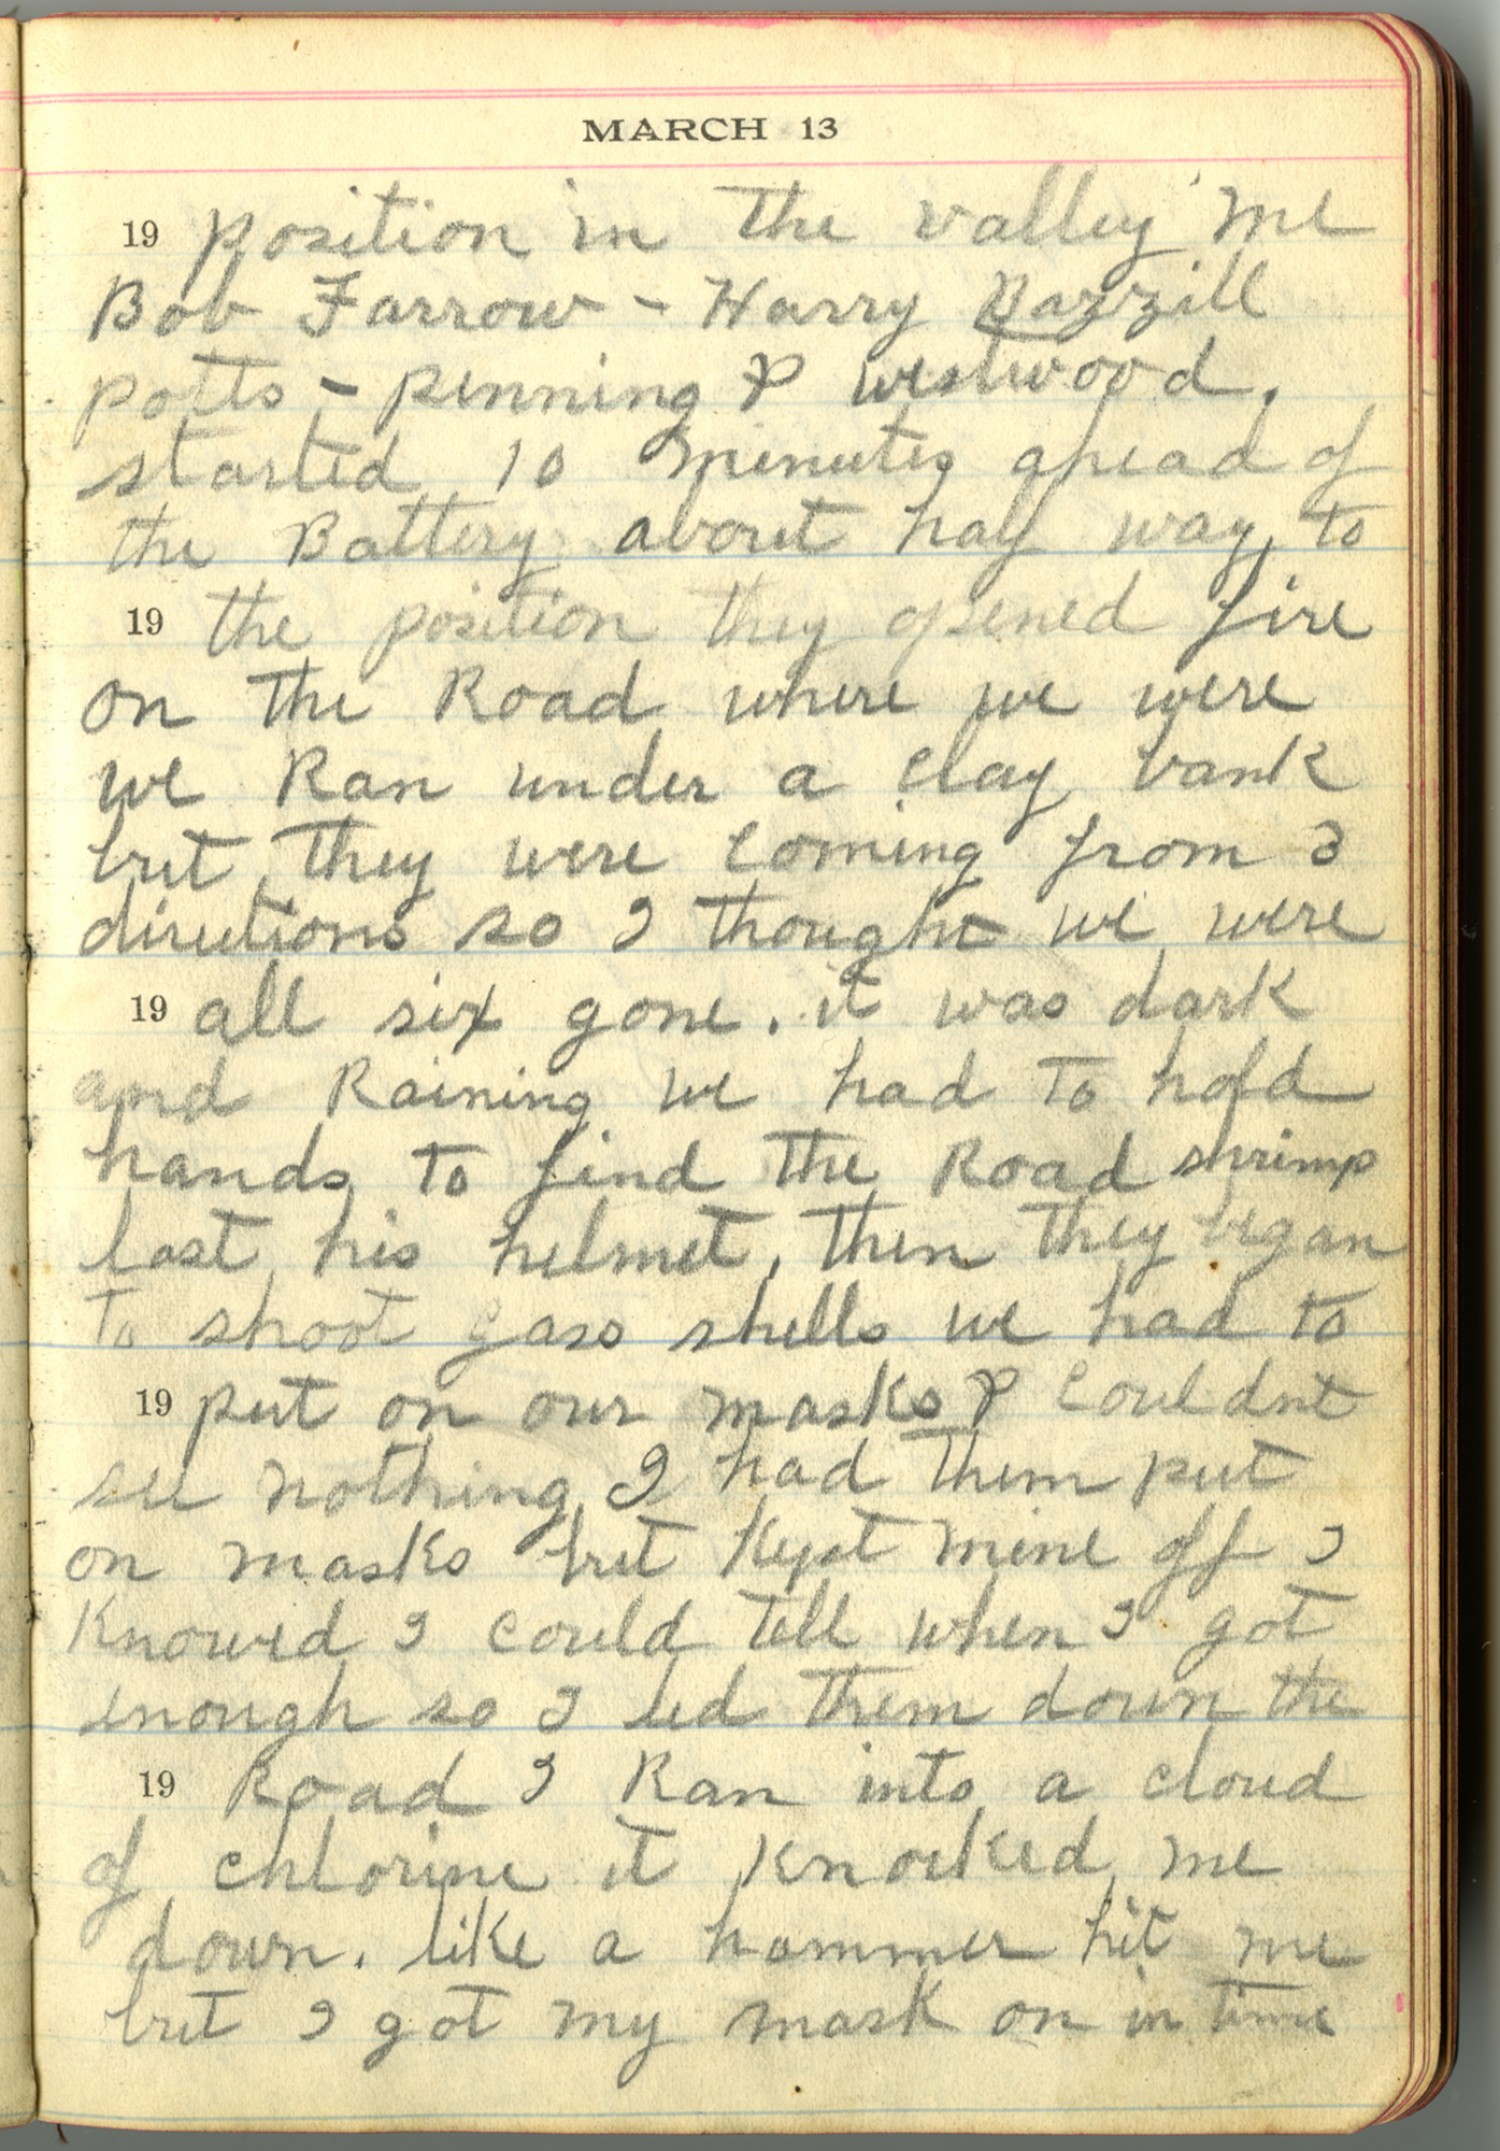 MARCH 13
19 position in the valley me
Bob Farrow - Harry Bazzill
potts - penning & westwood.
started 10 minutes ahead of
the Battery about half way to
19 the position they opened fire
on the Road where we were
we Ran under a clay bank
but they were coming from 3
directions so I thought we were
19 all six gone. it was dark
and Raining we had to hold
hands to find the Road shrimp
lost his helmet, then they began
to shoot gass shells we had to
19 put on our masks & couldnt
see nothing I had them put
on masks but kept mine off I
Knowed I could tell when I got
enough so I led them down the
19 Road I Ran into a cloud
of chlorine it knocked me
down. like a hammer hit me
but I got my mask on in time